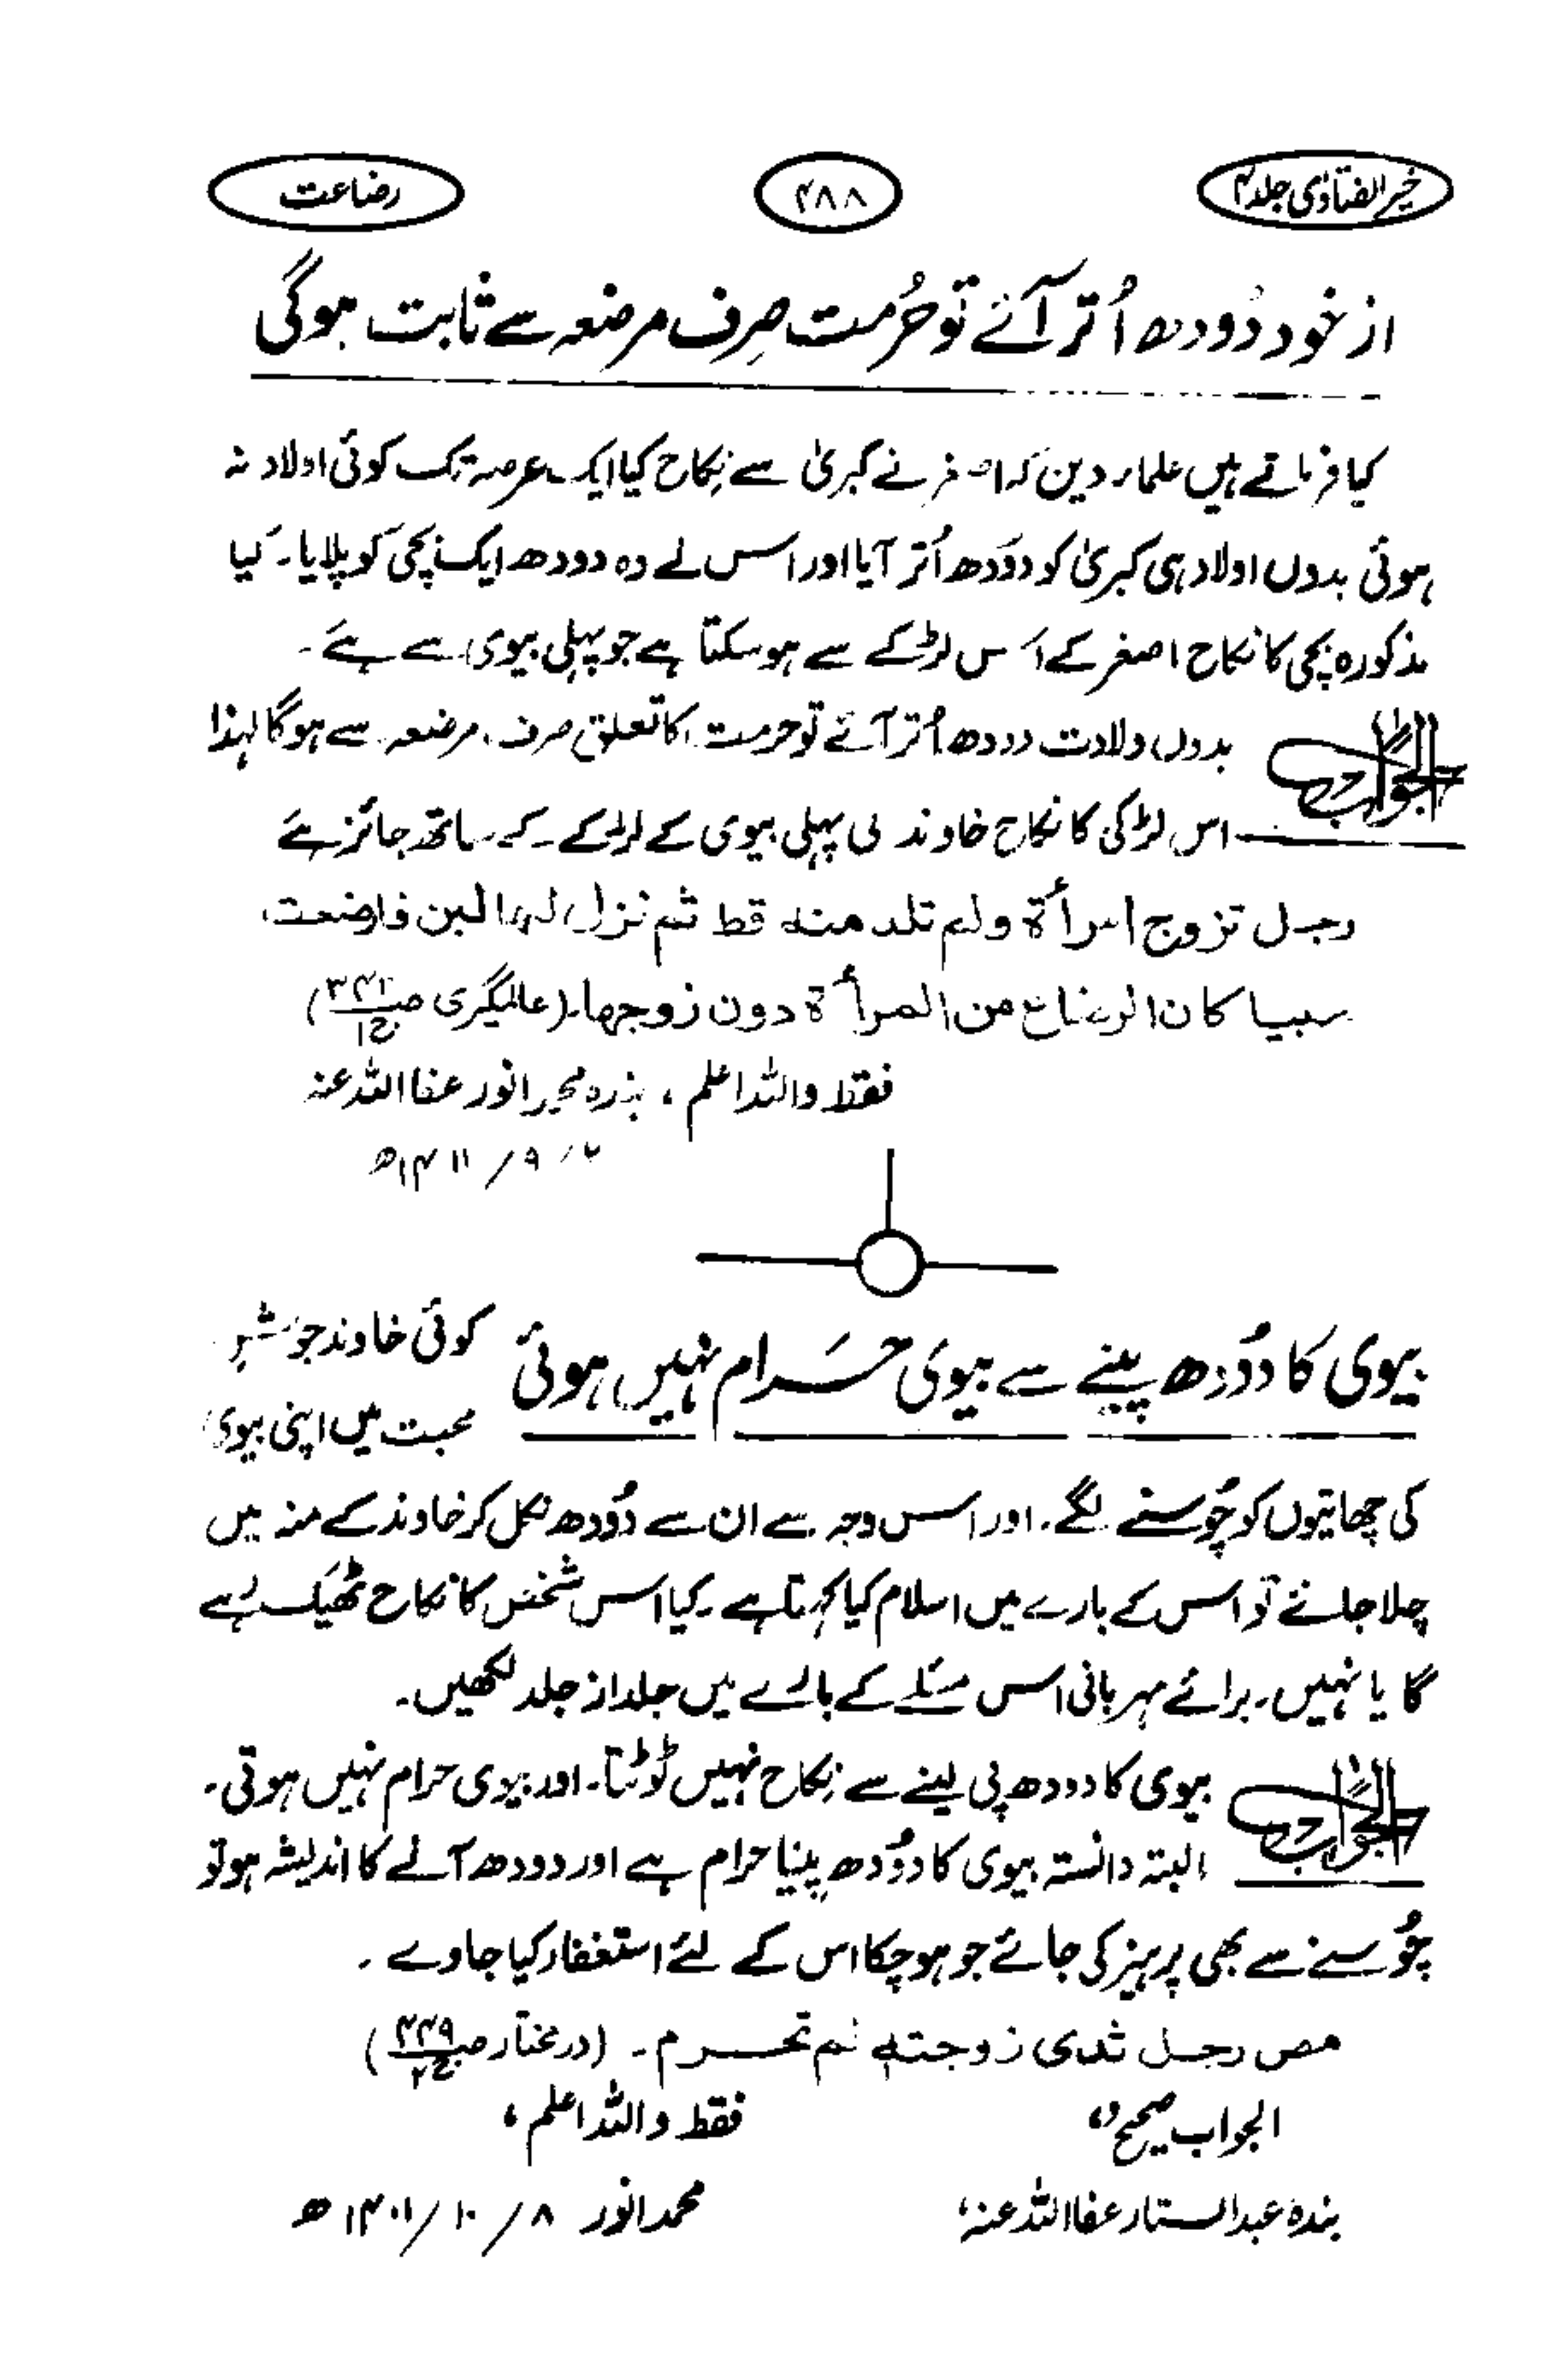 خیر الفتاوٰی جلد ۴
۴۸۸
رضاعت
از خود دُودھ اُتر آئے تو حُرمت صِرف مرضعہ سے ثابت ہوگی
کیا فرماتے ہیں علماء دین کہ اصغر نے کبریٰ سے نِکاح کیا ایک عرصہ تک کوئی اولاد نہ
ہوئی بدوں اولاد ہی کبریٰ کو دُودھ اُتر آیا اور اس نے وہ دودھ ایک بچی کو پلایا۔ کیا
مذکورہ بچی کا نکاح اصغر کے اس لڑکے سے ہو سکتا ہے جو پہلی بیوی سے ہے۔
الجواب بدوں ولادت دودھ اُتر آئے تو حرمت کا تعلق صرف مرضعہ سے ہوگا لہذا
اس لڑکی کا نکاح خاوند کی پہلی بیوی کے لڑکے کے ساتھ جائز ہے
رجل تزوج امرأة ولم تلد منه قط ثم نزل لها لبن فارضعت
صبيا كان الرضاع من المرأة دون زوجها۔ (عالمگیری ص ج۱)
فقط واللہ اعلم ، بندہ محمد انور عفا اللہ عنہ
/۹/ ۱۴۱۱ھ
بیوی کا دُودھ پینے سے بیوی حَرام نہیں ہوئی
کوئی خاوند جوشِ
محبت میں اپنی بیوی
کی چھاتیوں کو چُوسنے لگے۔ اور اس وجہ سے ان سے دُودھ نکل کر خاوند کے منہ میں
چلا جائے تو اس کے بارے میں اسلام کیا کہتا ہے۔ کیا اس شخص کا نکاح ٹھیک رہے
گا یا نہیں۔ برائے مہربانی اس مسئلے کے بارے میں جلد از جلد لکھیں۔
الجواب بیوی کا دودھ پی لینے سے نِکاح نہیں ٹوٹتا۔ اور بیوی حرام نہیں ہوتی۔
البتہ دانستہ بیوی کا دُودھ پینا حرام ہے اور دودھ آنے کا اندیشہ ہو تو
چُوسنے سے بھی پرہیز کی جائے جو ہو چکا اس کے لئے استغفار کیا جاوے ۔
مص رجل ثدی زوجته لم تحرم۔ (در مختار ص۴۳۹ ج۲)
الجواب صحیح
فقط واللہ اعلم ،
بندہ عبدالستار عفا اللہ عنہ،
محمد انور ۸ /۱۰/ ۱۴۰۱ھ